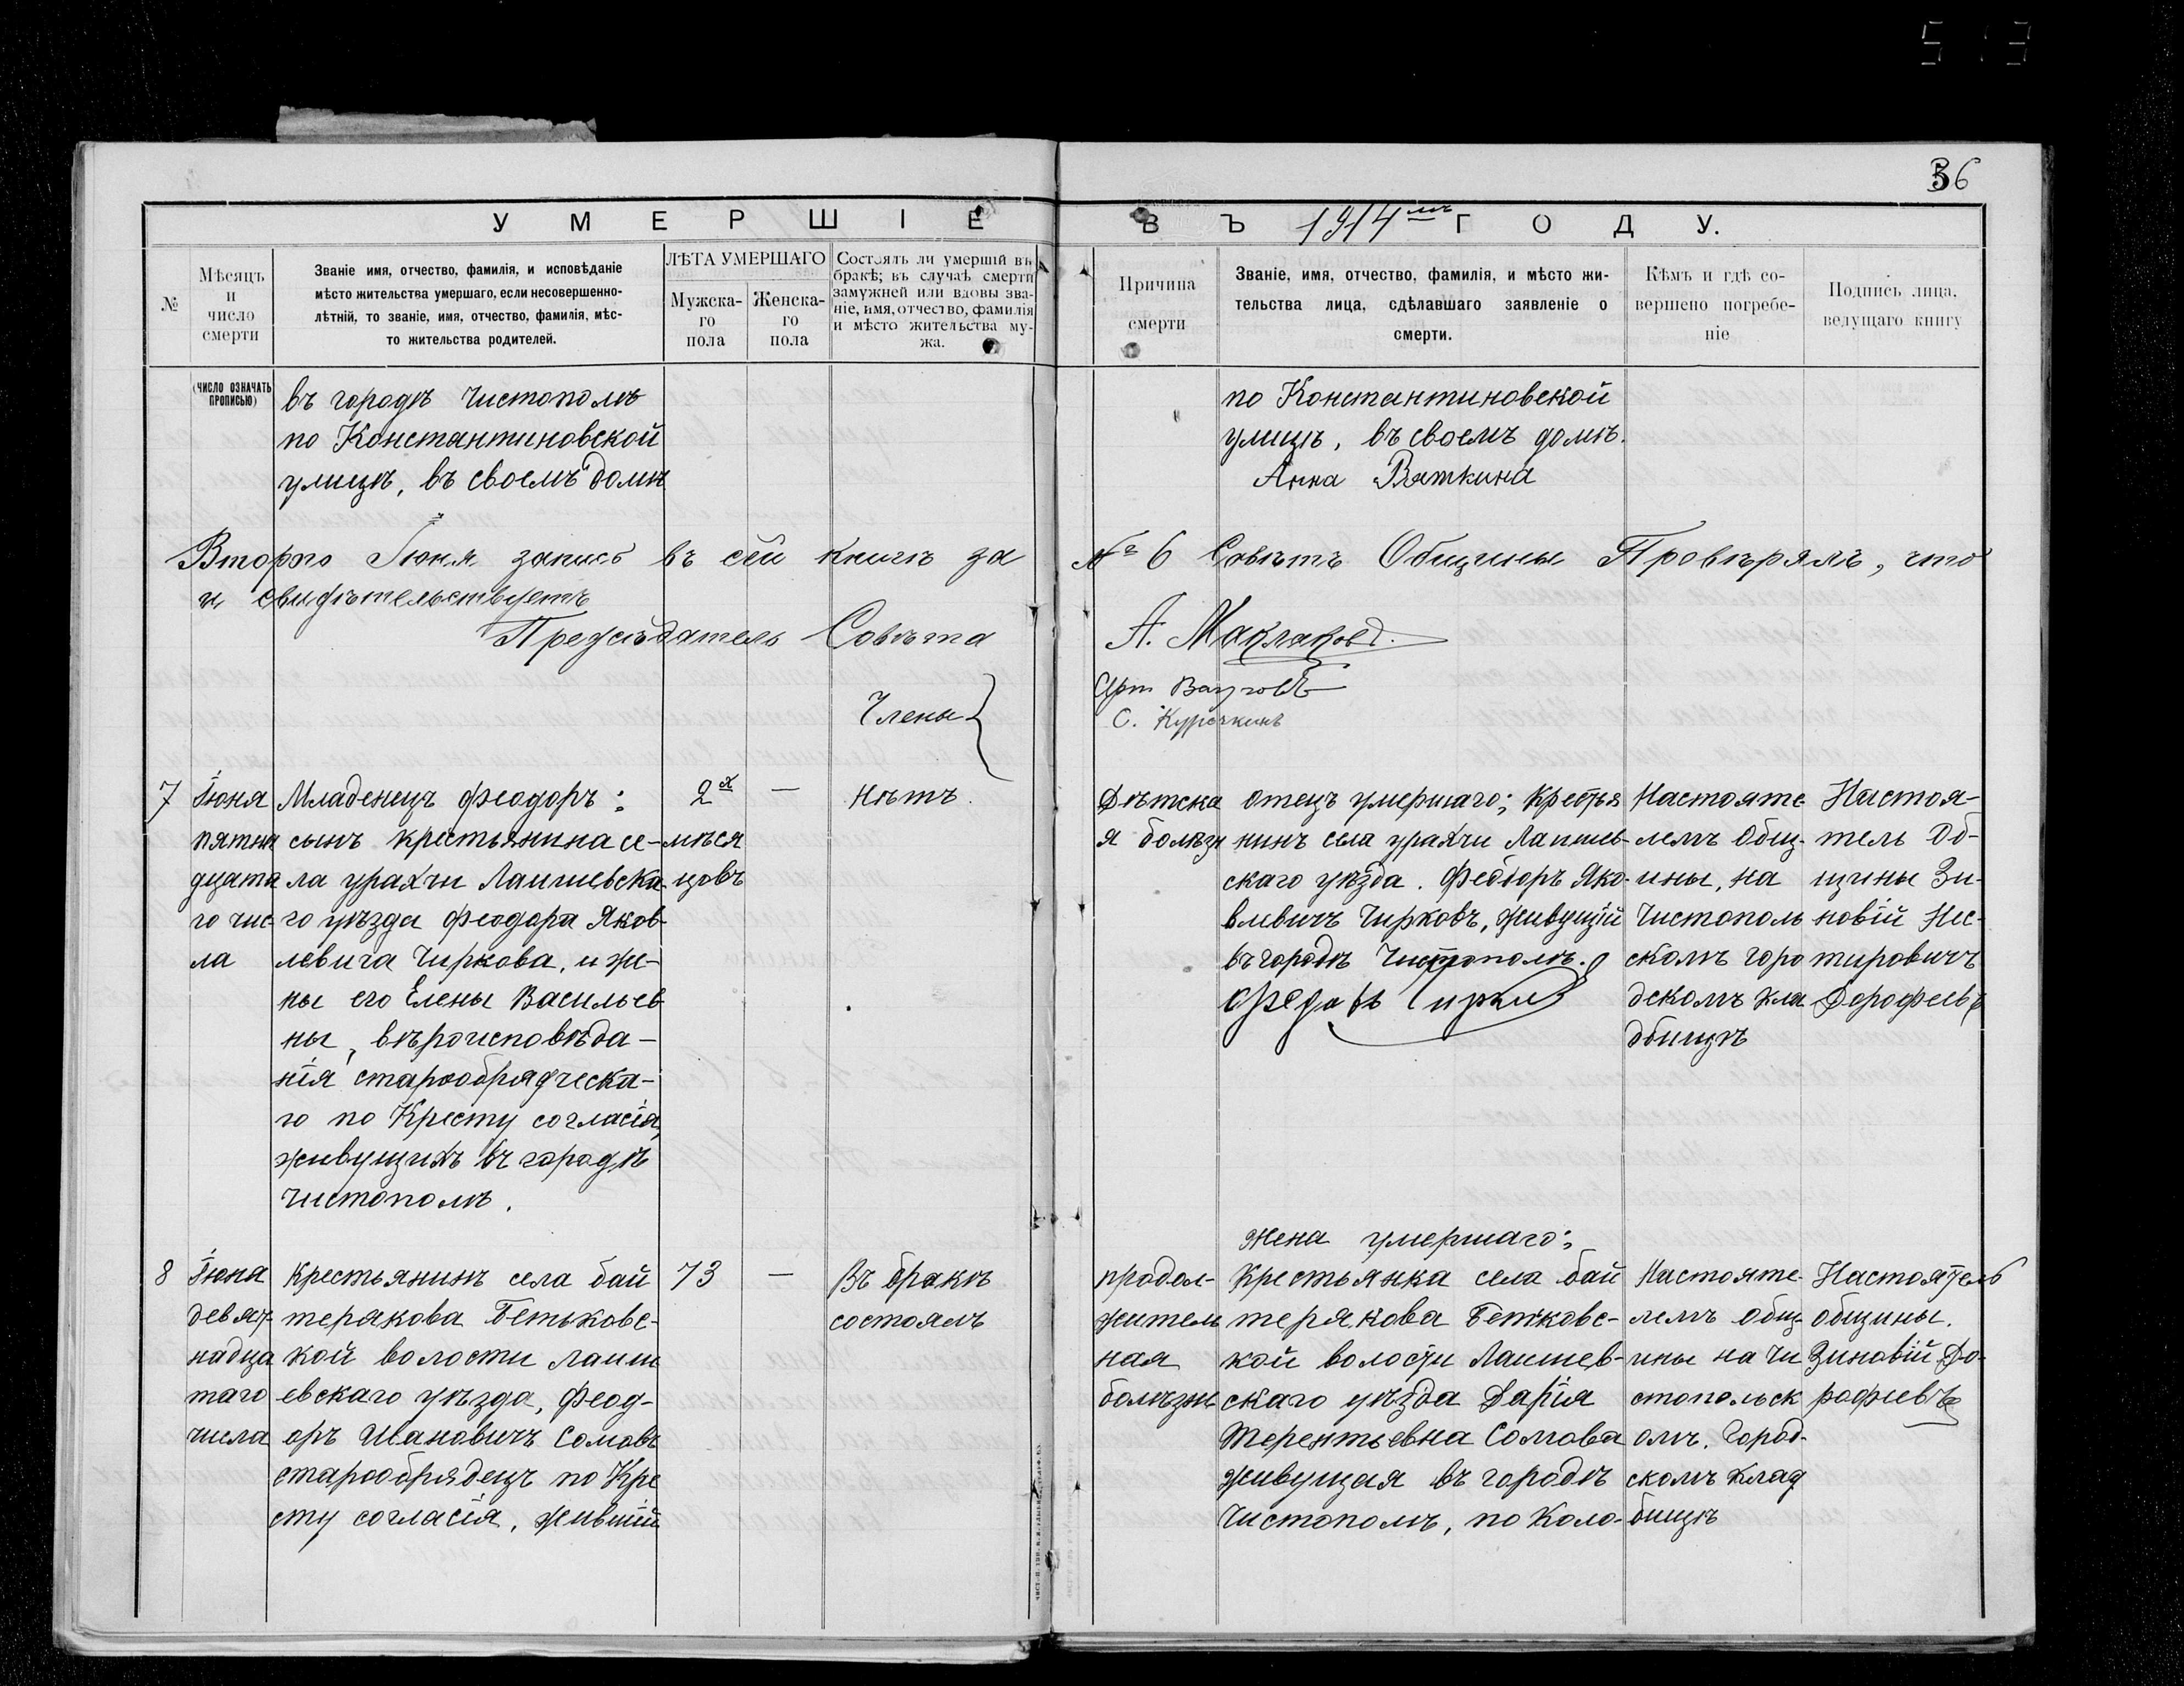 513
36
УМЕРШІЕ
ВЪ 1914мъ ГОДУ.
№
Мѣсяцъ
и
число
смерти
(ЧИСЛО ОЗНАЧАТЬ
ПРОПИСЬЮ)
Званіе имя, отчество, фамилія, и исповѣданіе
мѣсто жительства умершаго, если несовершенно-
лѣтній, то званіе, имя, отчество, фамилія, мѣс-
то жительства родителей.
ЛѢТА УМЕРШАГО
Мужска-
го
пола
Женска-
го
пола
Состоялъ ли умершій въ
бракѣ; въ случаѣ смерти
замужней или вдовы зва-
ніе, имя, отчество, фамилія
и мѣсто жительства му-
жа.
Причина
смерти
Званіе, имя, отчество, фамилія, и мѣсто жи-
тельства лица, сдѣлавшаго заявленіе о
смерти.
Кѣмъ и гдѣ со-
вершено погребе-
ніе
Подпись лица,
ведущаго книгу
въ городѣ Чистополѣ
по Константиновской
улицѣ, въ своемъ домѣ
по Константиновской
улицѣ, въ своемъ домѣ.
Анна Вяткина
Второго Іюня запись въ сей книгѣ за № 6 Совѣтъ Общины Провѣрялъ, что
и свидѣтельствуетъ
Предсѣдатель Совѣта А. Маклаковъ.
Члены
С. Курочкинъ
7
Іюня
пятна
дцата
го чис-
ла
Младенецъ Феодоръ:
сынъ крестьянина се-
ла урахчи Лаишевска
го уѣзда Феодора Яков-
левича Чиркова, и же-
ны его Елены Васильев
ны, вѣроисповѣда-
нія старообрядческа-
го по Кресту согласія,
живущихъ въ городѣ
Чистополѣ.
2х
мѣся
цовъ
—
нѣтъ.
Дѣтска
я болѣзн
отецъ умершаго; крестья
нинъ села урахчи Лаишев-
скаго уѣзда. Феодоръ Яко-
влевичъ Чирковъ, живущій
въ городѣ Чистополѣ.
Федоръ
Настояте
лемъ Общ-
ины, на
Чистополь
скомъ горо
дскомъ кла
дбищѣ
Настоя-
тель Об-
щины Зи-
новій Нес-
тировичъ
Дорофеевъ
8
Іюня
девят-
надца
таго
числа
Крестьянинъ села бай
терякова Бетьковс-
кой волости лаиш
евскаго уѣзда, Феод-
оръ Ивановичъ Сомовъ
старообрядецъ по Кре
сту согласія, жившій
73
—
Въ бракѣ
состоялъ
продол-
жителъ
ная
болѣзнь
Жена умершаго:
Крестьянка села бай
терякова Бетковс-
кой волости Лаишев-
скаго уѣзда Дарія
Терентьевна Сомова
живущая въ городѣ
Чистополѣ, по Коло-
Настояте-
лемъ Общ-
ины на Чи
стопольск
омъ. Город-
скомъ клад
бищѣ
Настоятель
общины.
Зиновій До-
рофеевъ